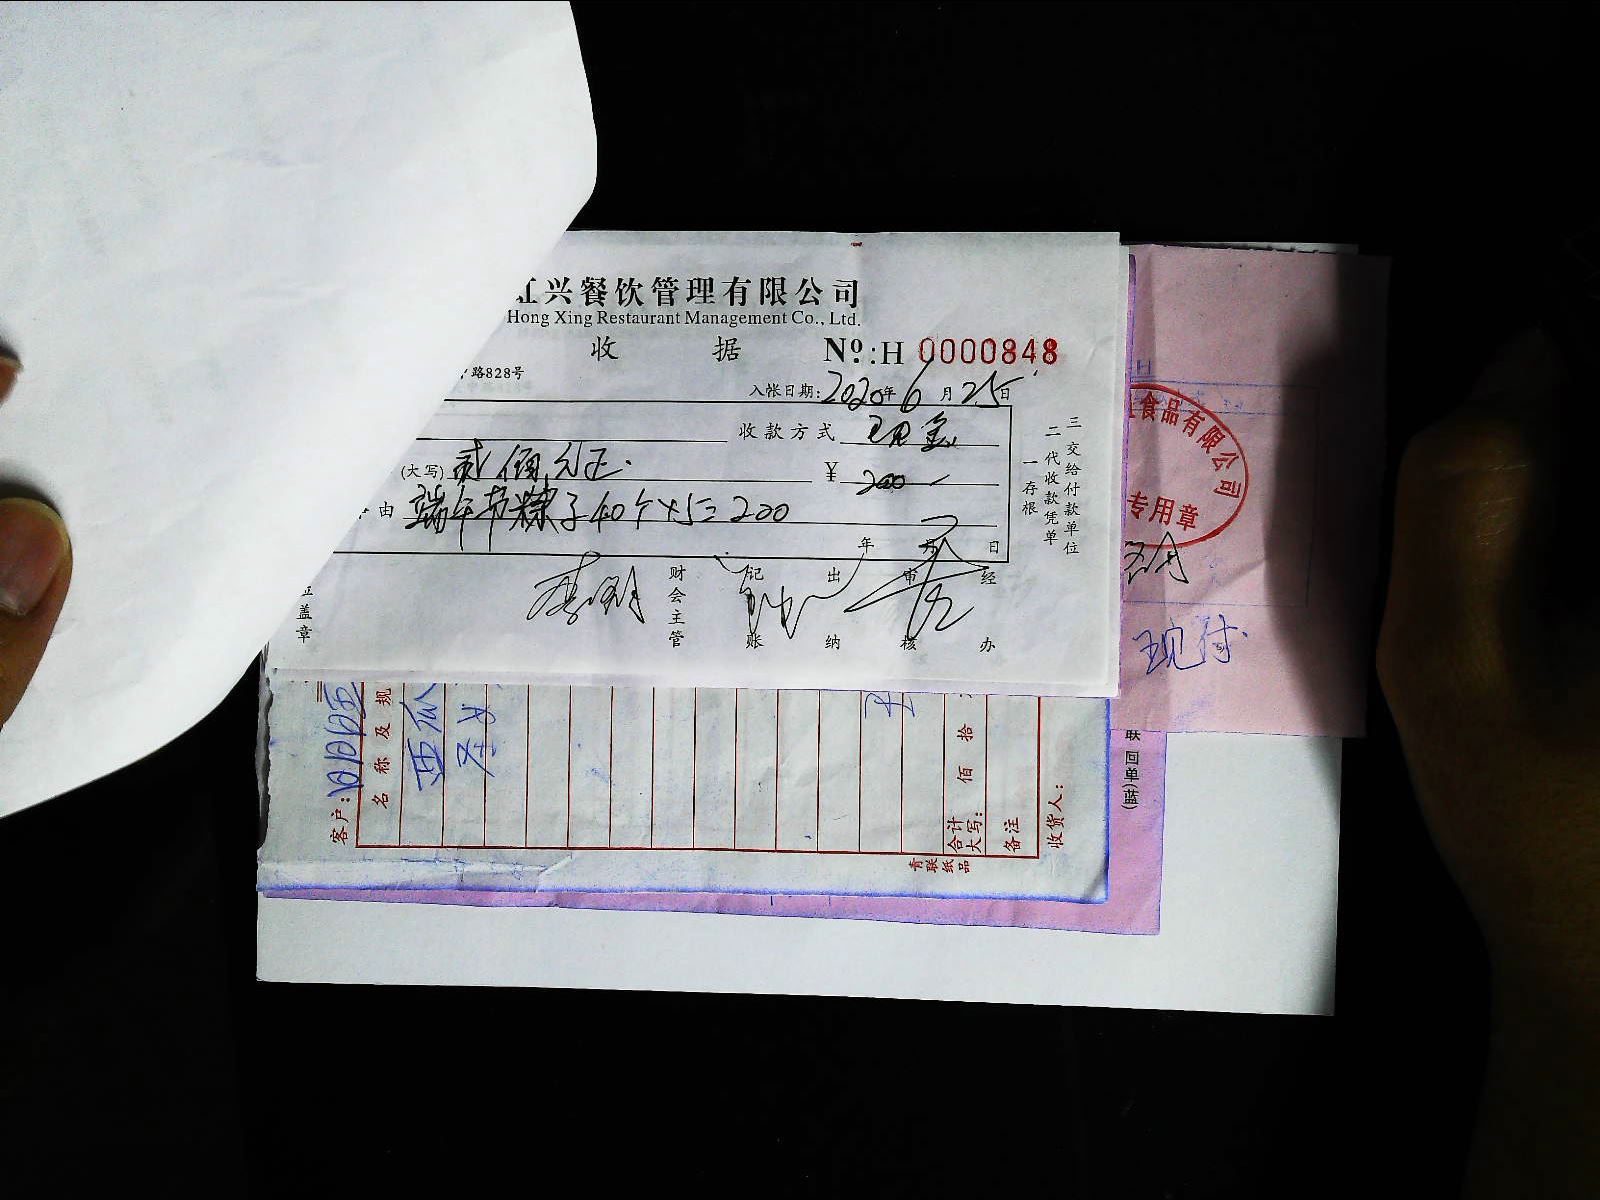 兴餐饮管理有限公司
Hong Xing Restaurant Management Co., Ltd.
收 据 Nº:H 0000848
路828号
入帐日期:2020年6月25日
收款方式 现金
(大写) 贰佰元正. ¥ 200-
由 端午节粽子40个×5=200
年 月 日
盖章 财会主管 记账 出纳 审核 经办
一存根
二代收款凭单
三交给付款单位
食品有限公司
专用章
现付.
(蓝)单回
客户:
名称及规
西瓜
合计大写: 佰 拾
备注
收货人:
青联纸品